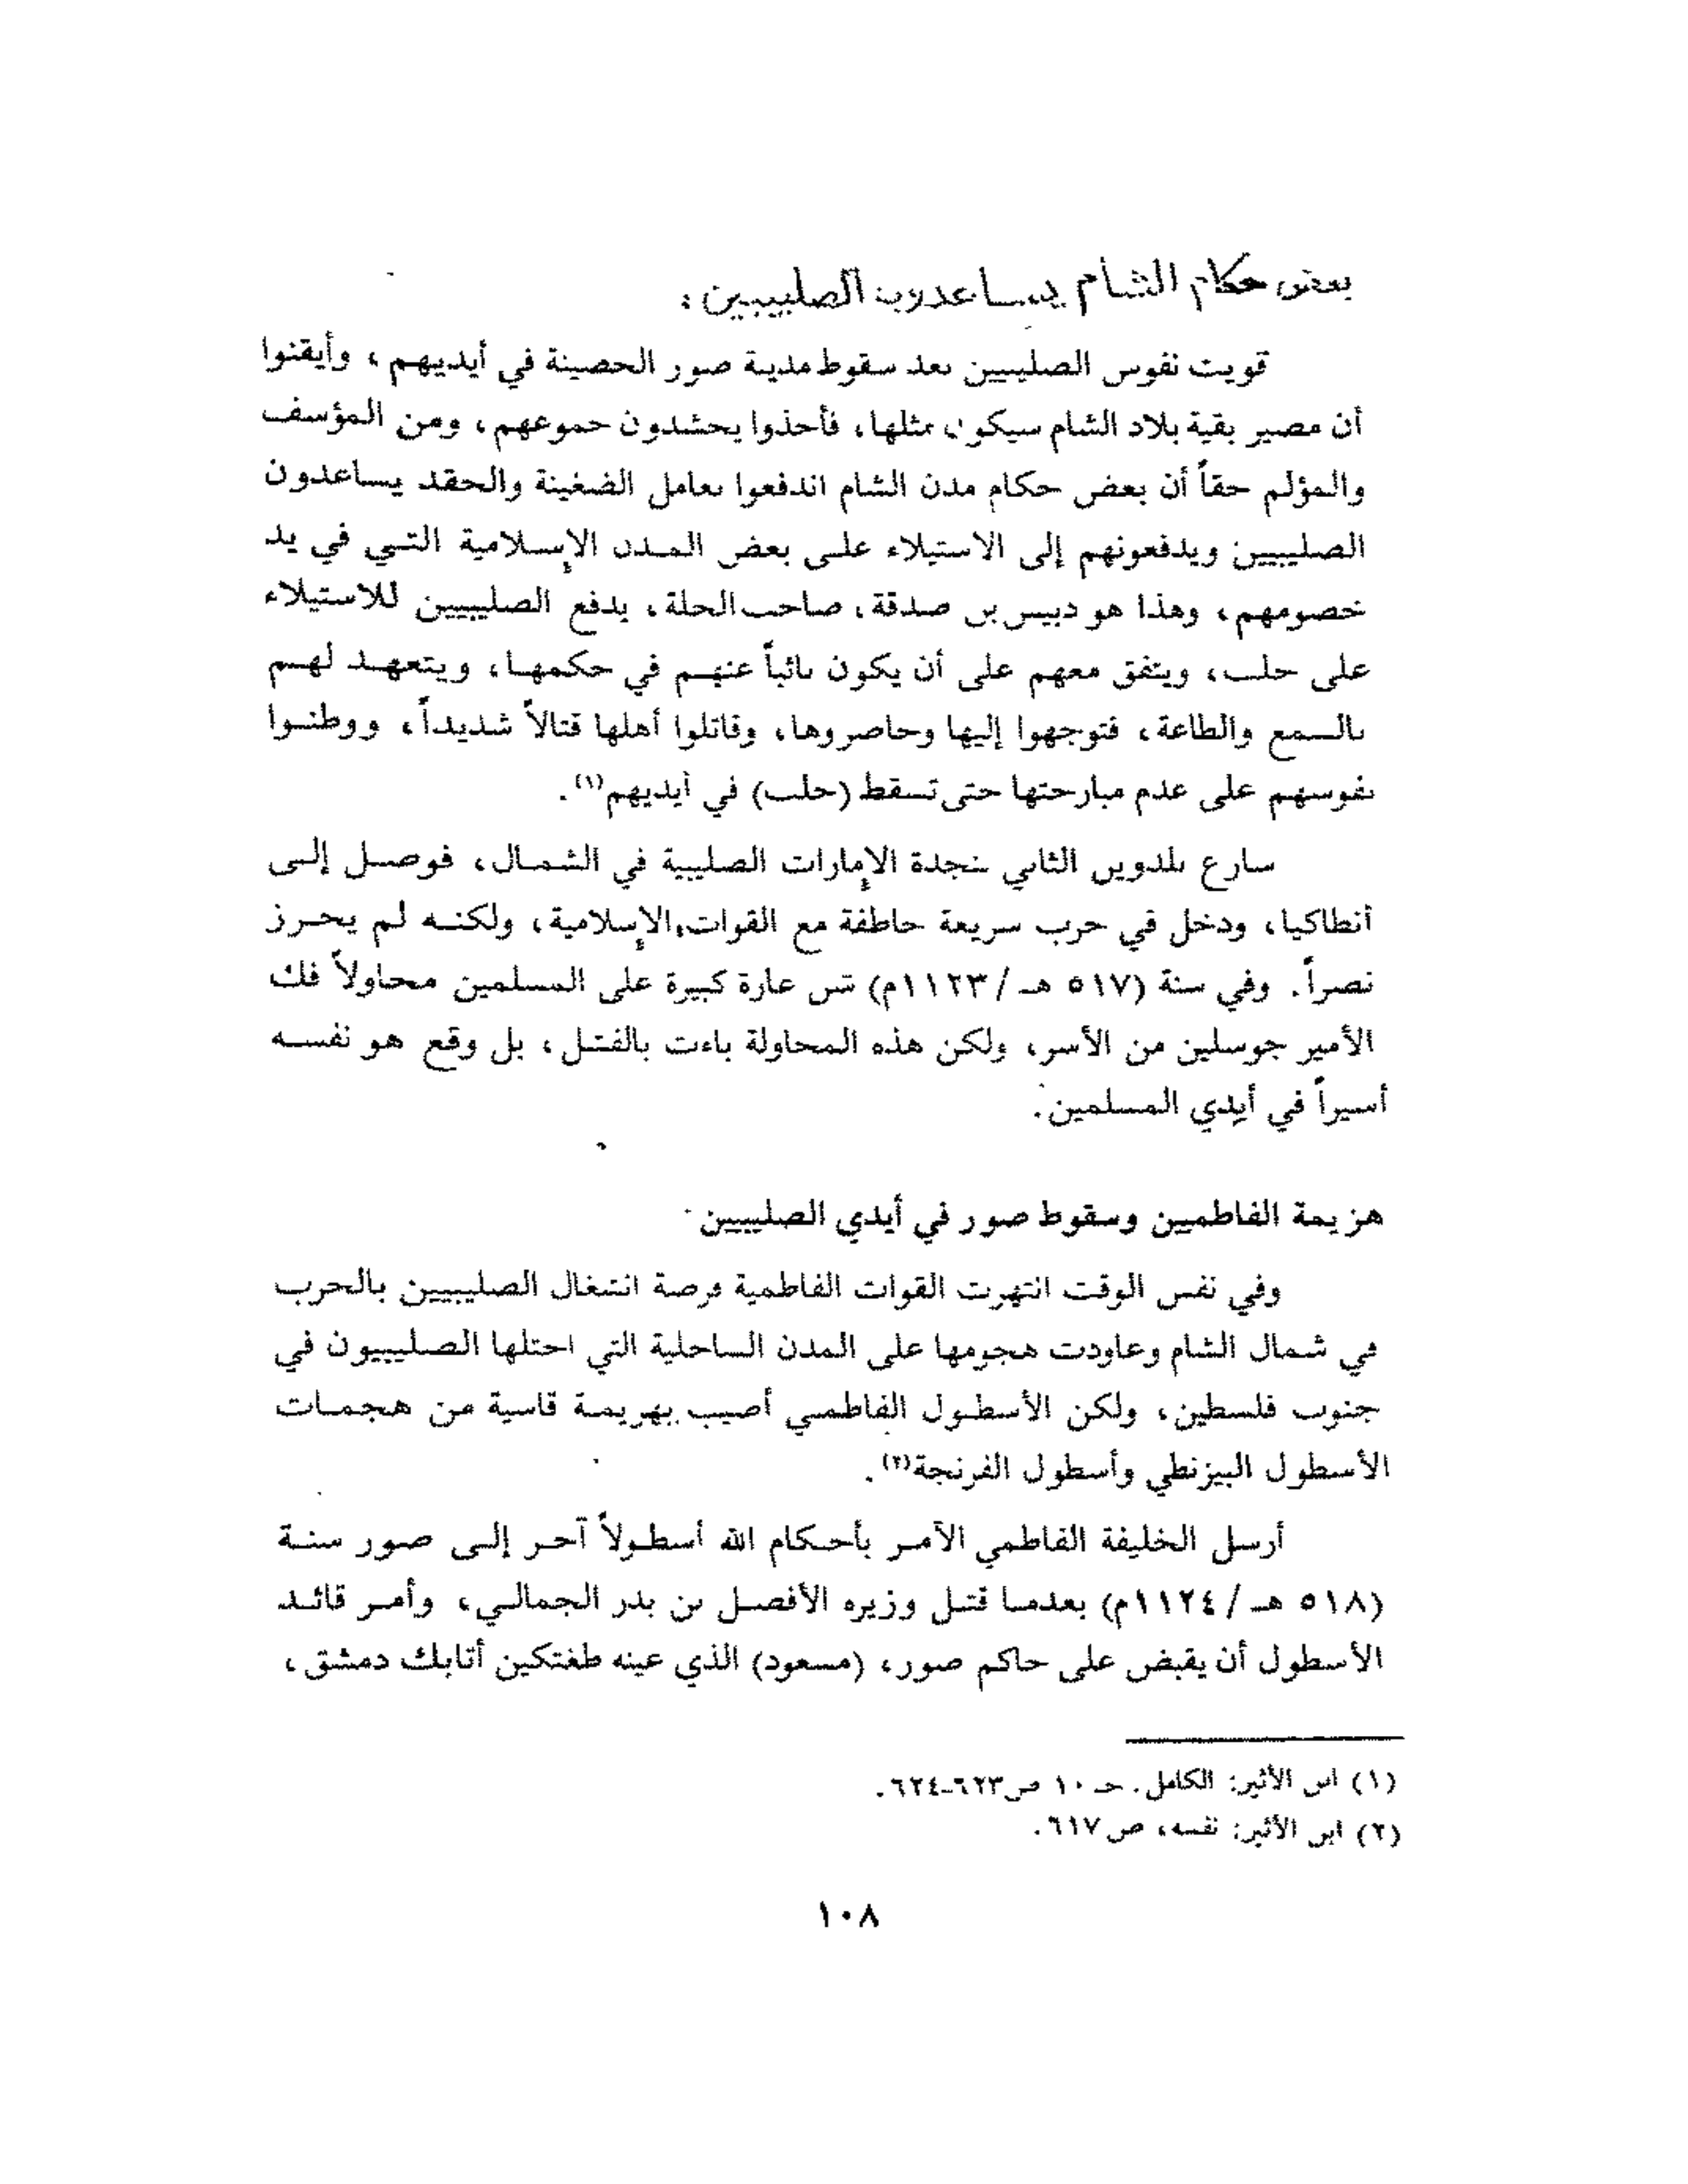 بعض حكام الشام يساعدون الصليبيين :
قويت نفوس الصليبيين بعد سقوط مدينة صور الحصينة في أيديهم ، وأيقنوا
أن مصير بقية بلاد الشام سيكون مثلها، فأخذوا يحشدون جموعهم ، ومن المؤسف
والمؤلم حقاً أن بعض حكام مدن الشام اندفعوا بعامل الضغينة والحقد يساعدون
الصليبيين ويدفعونهم إلى الاستيلاء على بعض المدن الإسلامية التي في يد
خصومهم ، وهذا هو دبيس بن صدقة ، صاحب الحلة ، يدفع الصليبيين للاستيلاء
على حلب ، ويتفق معهم على أن يكون نائباً عنهم في حكمها ، ويتعهد لهم
بالسمع والطاعة ، فتوجهوا إليها وحاصروها ، وقاتلوا أهلها قتالاً شديداً ، ووطنوا
نفوسهم على عدم مبارحتها حتى تسقط (حلب) في أيديهم(١) .
سارع بلدوين الثاني لنجدة الإمارات الصليبية في الشمال ، فوصل إلى
أنطاكيا ، ودخل في حرب سريعة خاطفة مع القوات الإسلامية ، ولكنه لم يحرز
نصراً . وفي سنة (٥١٧ هـ / ١١٢٣م) شن غارة كبيرة على المسلمين محاولاً فك
الأمير جوسلين من الأسر ، ولكن هذه المحاولة باءت بالفشل ، بل وقع هو نفسه
أسيراً في أيدي المسلمين .
هزيمة الفاطميين وسقوط صور في أيدي الصليبيين
وفي نفس الوقت انتهزت القوات الفاطمية فرصة انشغال الصليبيين بالحرب
في شمال الشام وعاودت هجومها على المدن الساحلية التي احتلها الصليبيون في
جنوب فلسطين ، ولكن الأسطول الفاطمي أصيب بهزيمة قاسية من هجمات
الأسطول البيزنطي وأسطول الفرنجة(٢) .
أرسل الخليفة الفاطمي الآمر بأحكام الله أسطولاً آخر إلى صور سنة
(٥١٨ هـ / ١١٢٤م) بعدما قتل وزيره الأفضل بن بدر الجمالي ، وأمر قائد
الأسطول أن يقبض على حاكم صور ، (مسعود) الذي عينه طغتكين أتابك دمشق ،
(١) ابن الأثير: الكامل . جـ ١٠ ص٦٢٣-٦٢٤ .
(٢) ابن الأثير: نفسه ، ص٦١٧ .
١٠٨